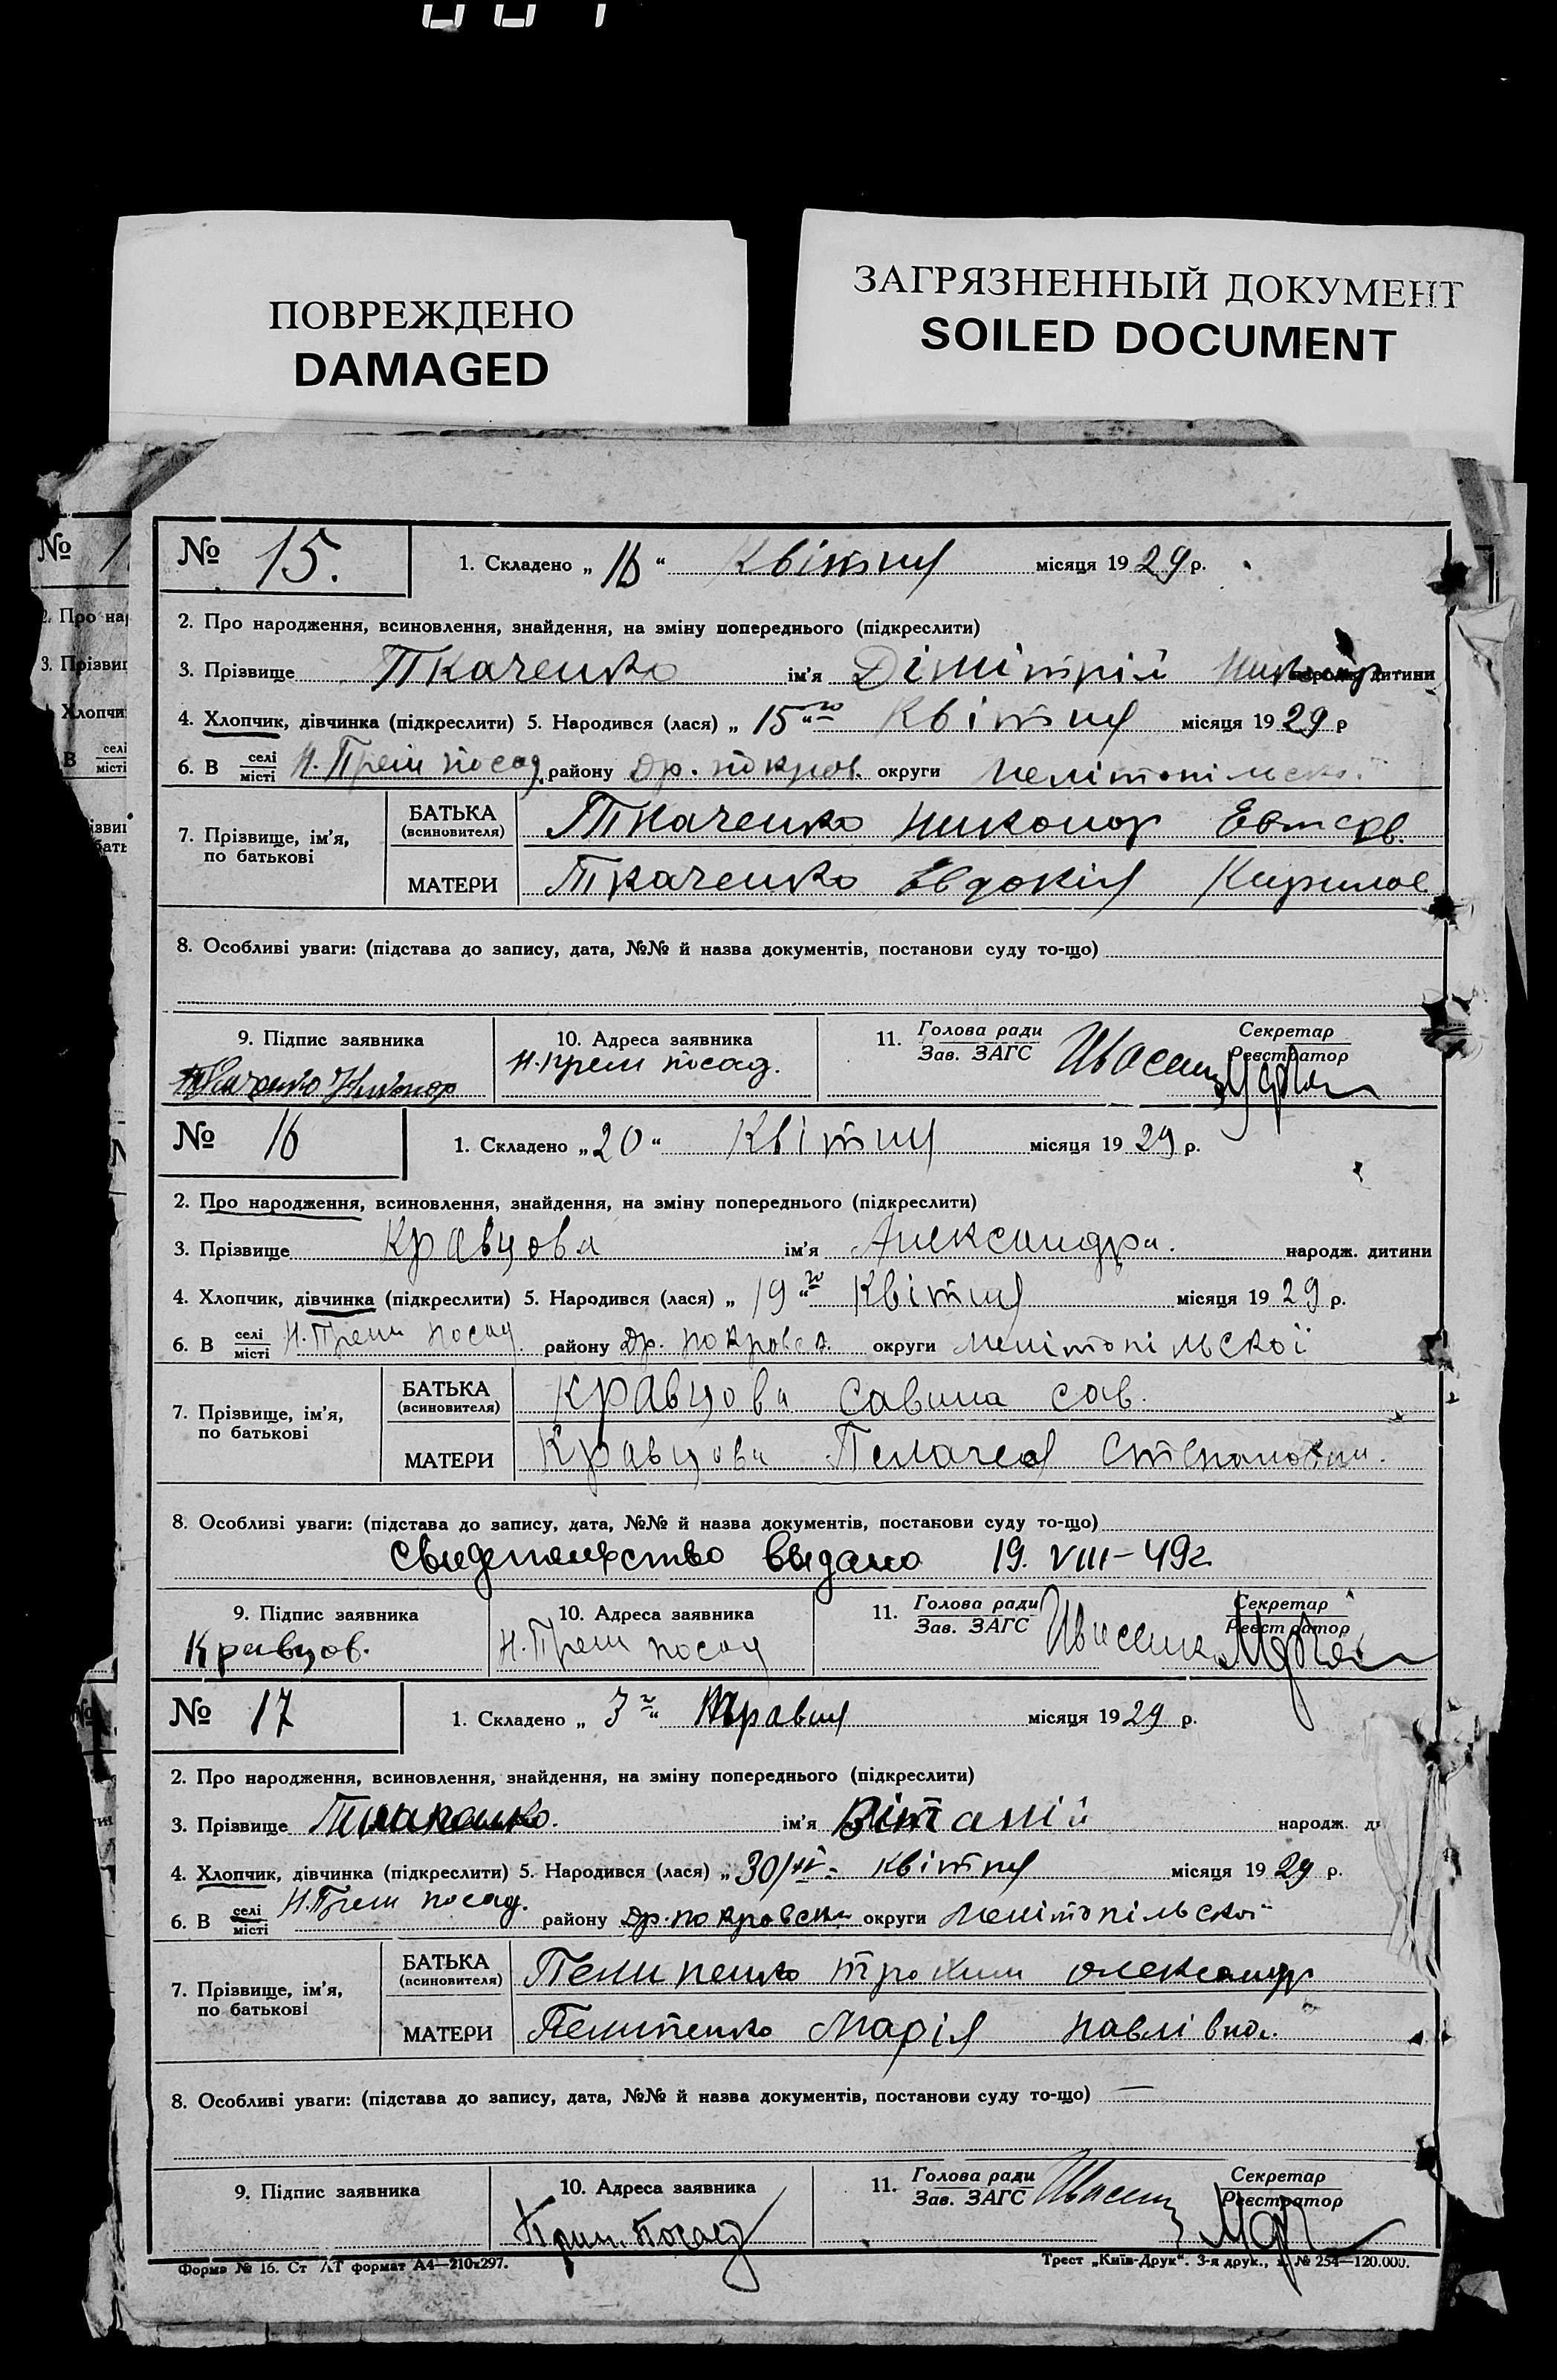 ПОВРЕЖДЕНО
DAMAGED
ЗАГРЯЗНЕННЫЙ ДОКУМЕНТ
SOILED DOCUMENT
№ 15. 1. Складено „ “ Квітня місяця 1929 р.
2. Про народження, всиновлення, знайдення, на зміну попереднього (підкреслити)
3. Прізвище Ткаченко ім'я Дімітрій дитини
4. Хлопчик, дівчинка (підкреслити) 5. Народився (лася) „ 15го “ Квітня місяця 1929 р
6. В селі місті посад. району округи Мелітопільскої
7. Прізвище, ім'я, по батькові
БАТЬКА (всиновителя) Ткаченко Никонор
МАТЕРИ Ткаченко Евдокія Кирилов
8. Особливі уваги: (підстава до запису, дата, №№ й назва документів, постанови суду то-що)
9. Підпис заявника 10. Адреса заявника 11. Голова ради Зав. ЗАГС Секретар Реєстратор
Ткаченко Никонор посад.
№ 16 1. Складено „ 20 “ Квітня місяця 1929 р.
2. Про народження, всиновлення, знайдення, на зміну попереднього (підкреслити)
3. Прізвище Кравцова ім'я Александра. народж. дитини
4. Хлопчик, дівчинка (підкреслити) 5. Народився (лася) „ 19го “ Квітня місяця 1929 р.
6. В селі місті посад. району округи Мелітопільскої
7. Прізвище, ім'я, по батькові
БАТЬКА (всиновителя) Кравцова Савина Сав.
МАТЕРИ Кравцова Пелагея
8. Особливі уваги: (підстава до запису, дата, №№ й назва документів, постанови суду то-що)
Свидетельство выдано 19. VIII-49г
9. Підпис заявника 10. Адреса заявника 11. Голова ради Зав. ЗАГС Секретар Реєстратор
Кравцов. посад
№ 17 1. Складено „ 3го “ Травня місяця 1929 р.
2. Про народження, всиновлення, знайдення, на зміну попереднього (підкреслити)
3. Прізвище ім'я Віталій народж.
4. Хлопчик, дівчинка (підкреслити) 5. Народився (лася) „ 30 Квітня місяця 1929 р.
6. В селі місті посад. району округи Мелітопільської
7. Прізвище, ім'я, по батькові
БАТЬКА (всиновителя) Пилипенко Трохим Олександр
МАТЕРИ Пилипенко Марія Павлівна.
8. Особливі уваги: (підстава до запису, дата, №№ й назва документів, постанови суду то-що)
9. Підпис заявника 10. Адреса заявника 11. Голова ради Зав. ЗАГС Секретар Реєстратор
Посад
Форма № 16. Ст АТ формат А4—210х297. Трест „Київ-Друк“. 3-я друк., № 254—120.000.